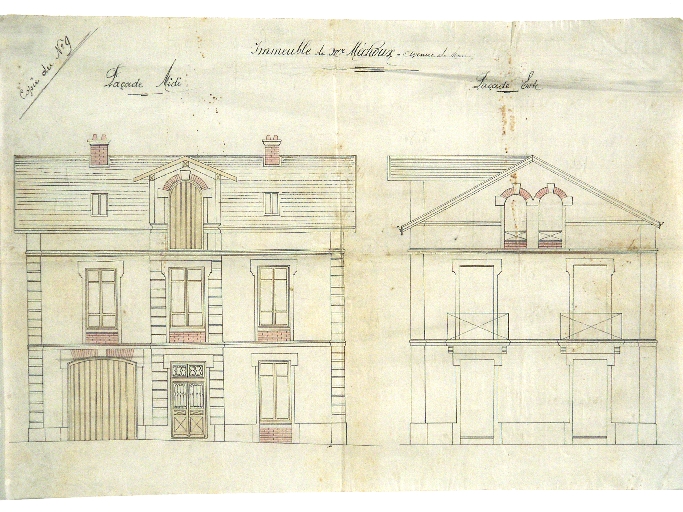 Copie du N°9
Immeuble de Mr Michoux - Avenue de
Façade Midi
Façade Est